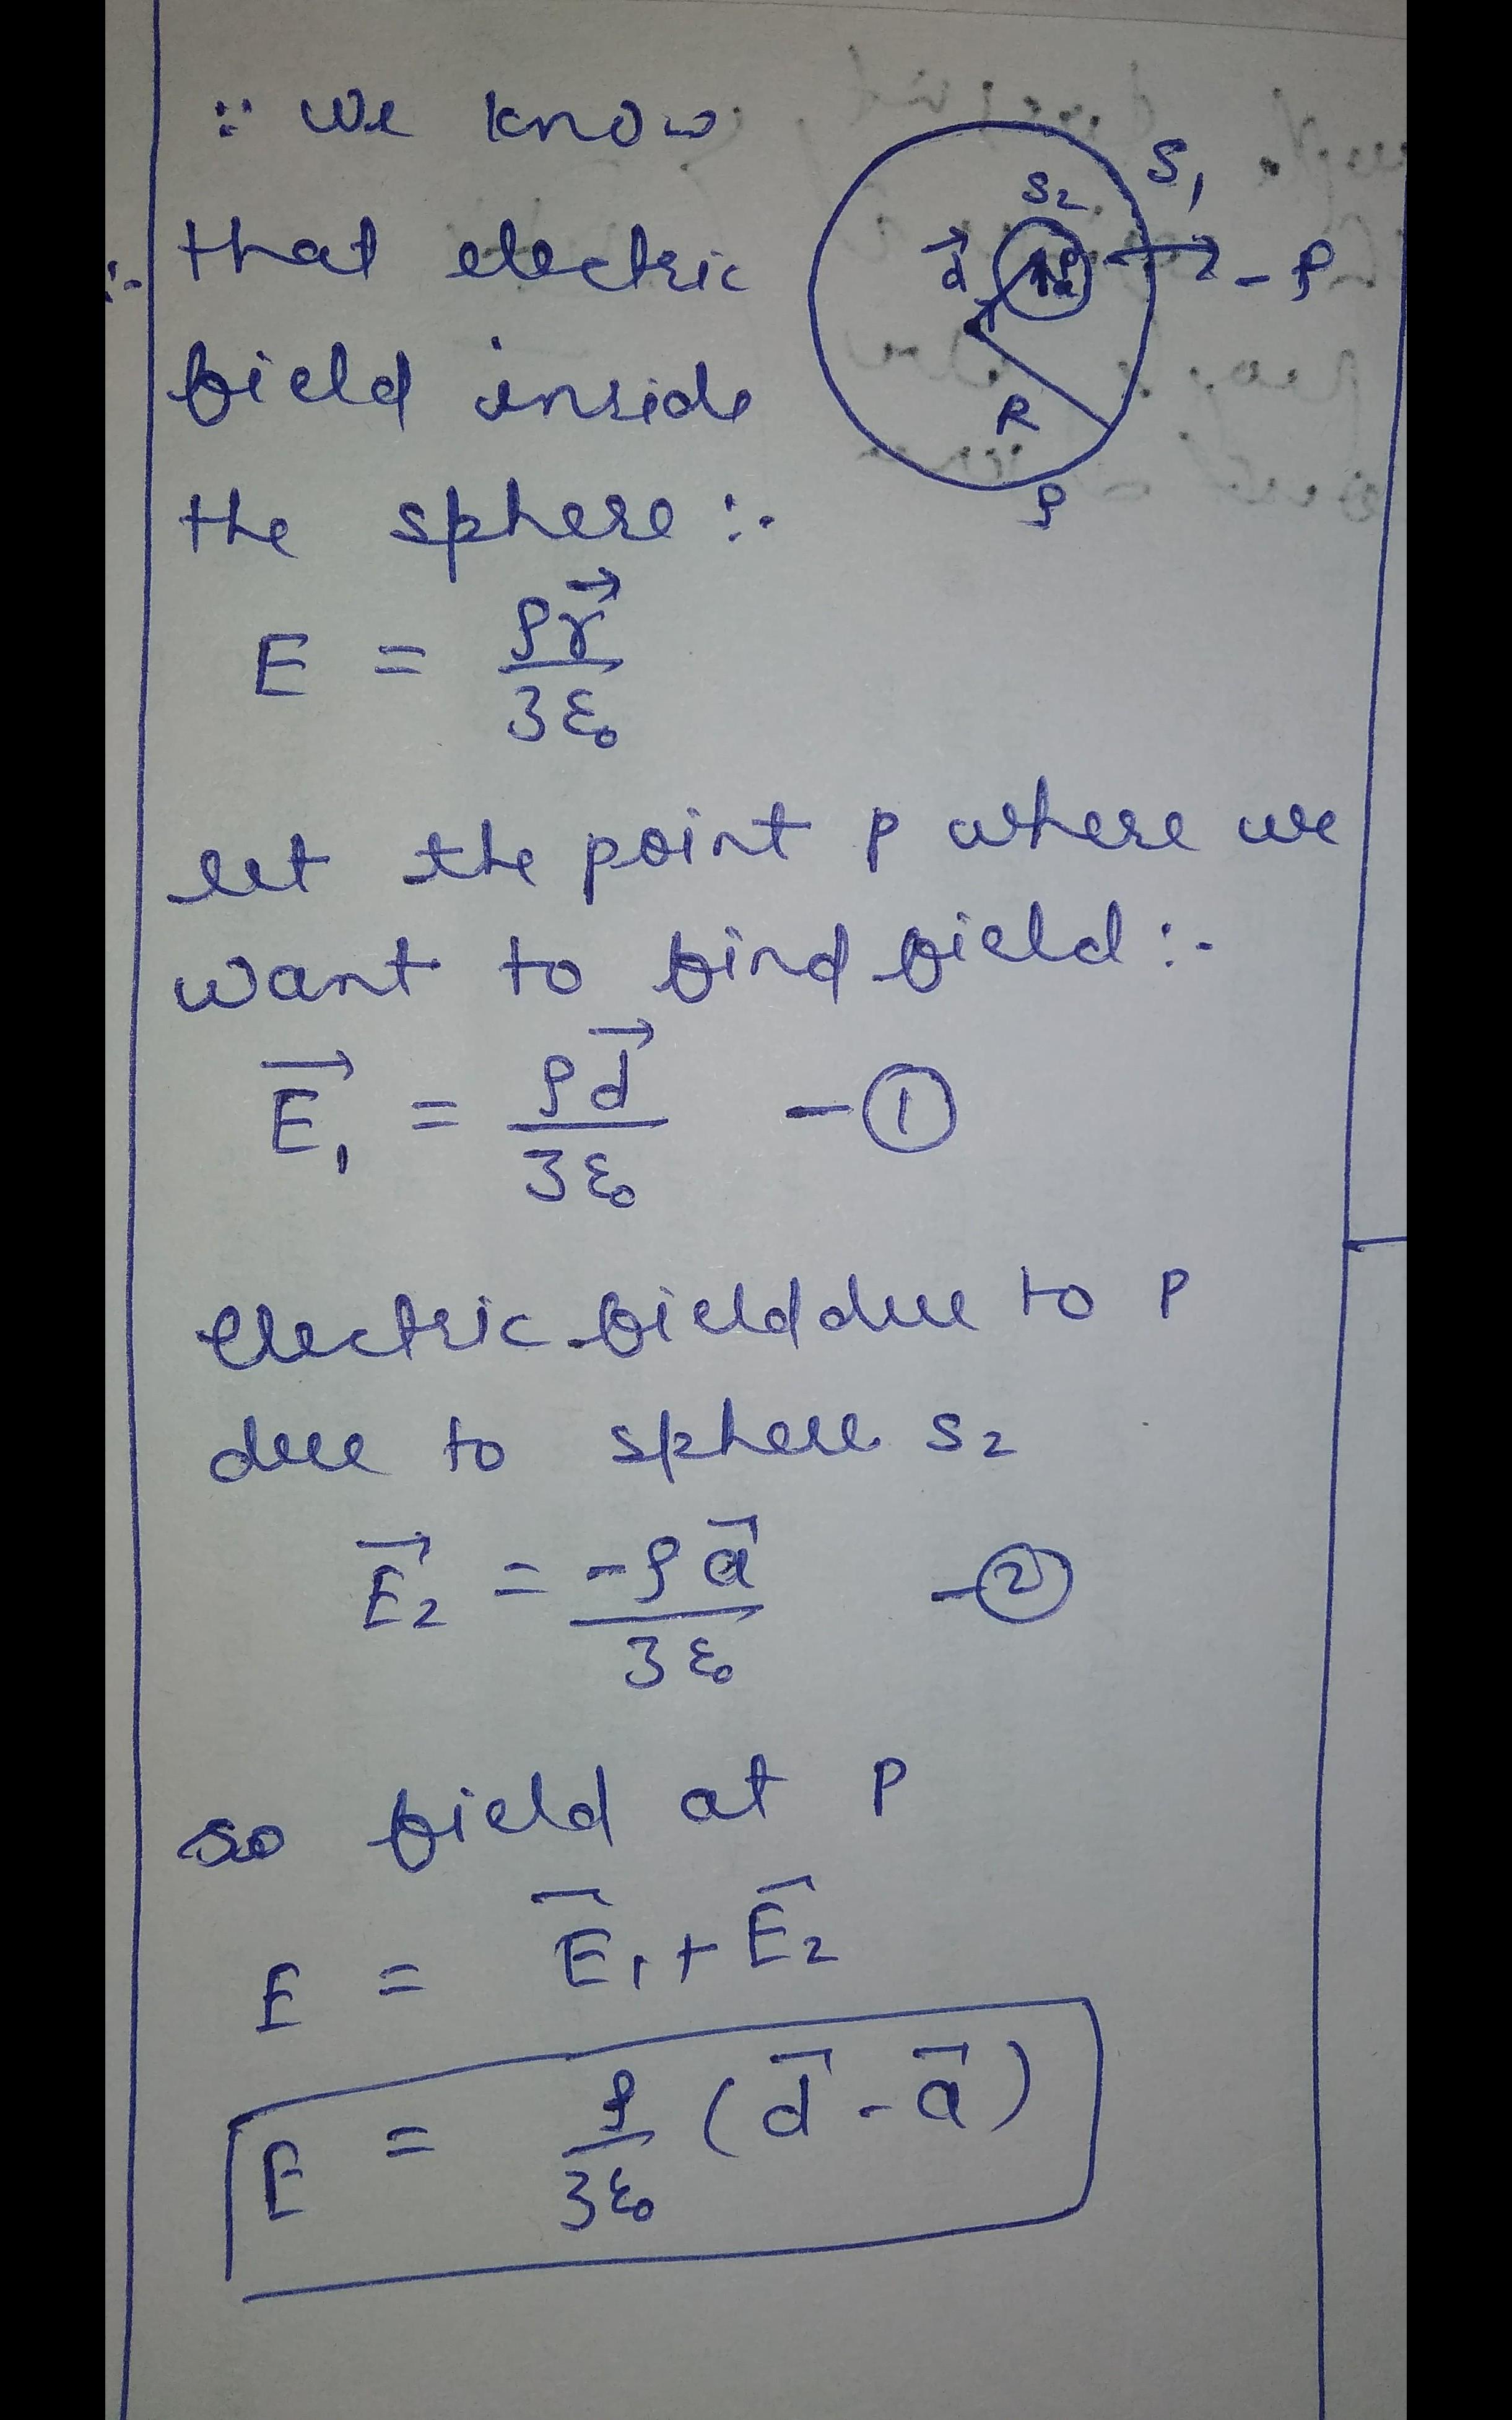 ∵ we know
∴ that electric
field inside
the sphere :-
S₁
S₂
d⃗
-ρ
R
ρ
E = ρr⃗ / 3ε₀
let the point p where we
want to find field :-
E⃗₁ = ρd⃗ / 3ε₀ - ①
electric field due to P
due to sphere S₂
E⃗₂ = -ρa⃗ / 3ε₀ - ②
so field at P
E = E⃗₁ + E⃗₂
E = ρ / 3ε₀ (d⃗ - a⃗)